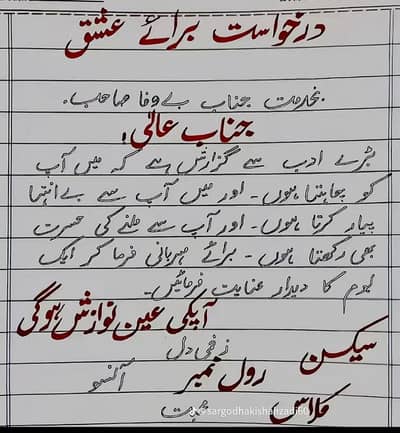 درخواست برائے عشق
بخدمت جناب بے وفا صاحب۔
جناب عالی!
بڑے ادب سے گزارش ہے کہ میں آپ
کو چاہتا ہوں۔ اور میں آپ سے بے انتہا
پیار کرتا ہوں۔ اور آپ سے ملنے کی حسرت
بھی رکھتا ہوں۔ برائے مہربانی فرما کر ایک
یوم کا دیدار عنایت فرمائیں۔
آپکی عین نوازش ہوگی
سیکسن زخمی دل
رول نمبر آنسو
کلاس محبت
sargodhakishahzadi60